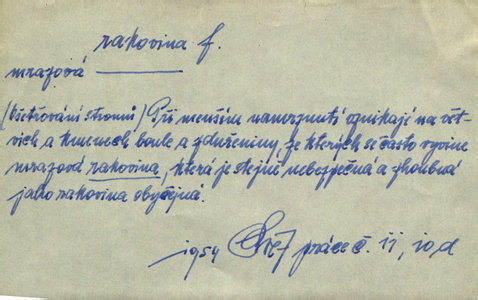 rakovina f.
mrazová
(Ošetřování stromů) Při menším namrznutí vznikají na vět-
vích a kmenech boule a zduřeniny, ze kterých se často vyvine
mrazová rakovina, která je stejně nebezpečná a zhoubná
jako rakovina obyčejná.
1954 práce č. 11, 10 d